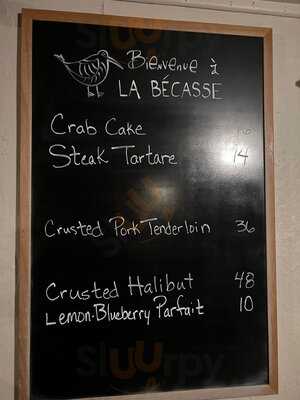 Bienvenue à
LA BÉCASSE
Crab Cake
Steak Tartare 14
Crusted Pork Tenderloin 36
Crusted Halibut 48
Lemon-Blueberry Parfait 10
sluurpy